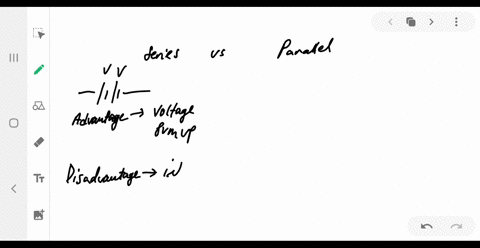 Series vs Parallel
V V
Advantage → Voltage
sum up
Disadvantage →